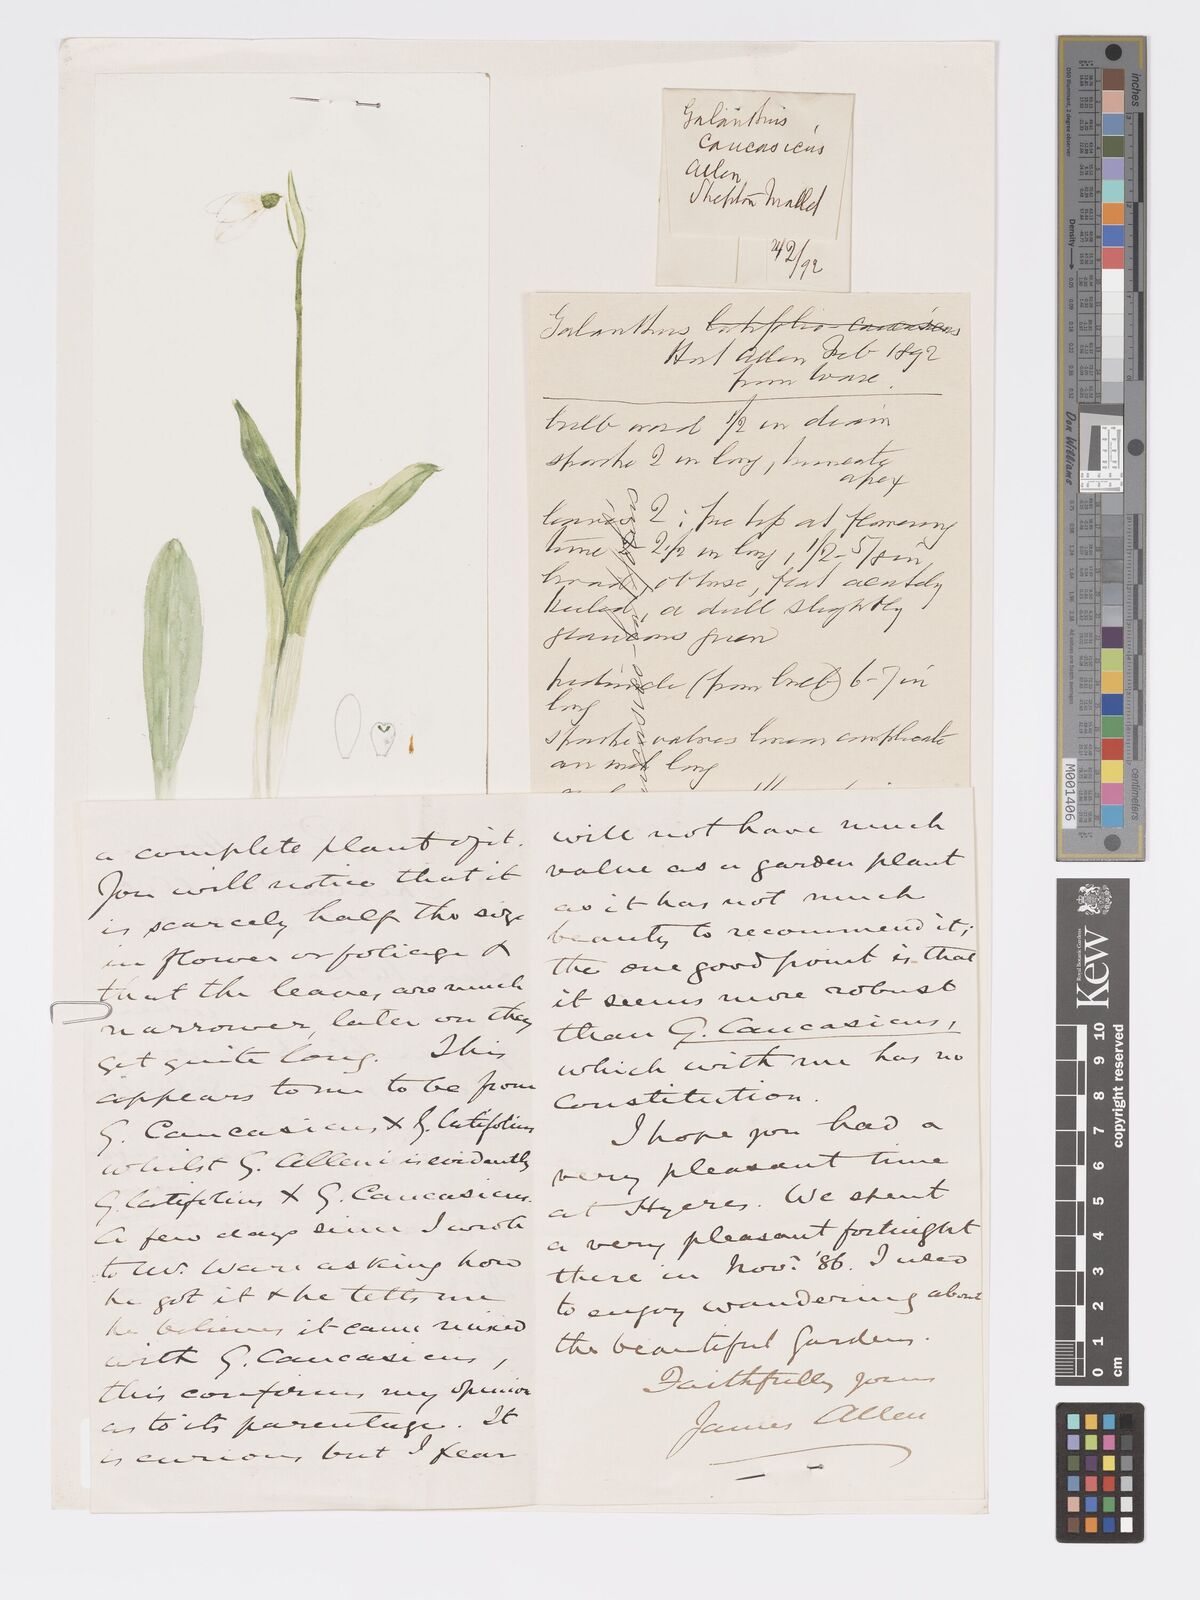 Galanthus
caucasicus
Allen
Shepton Mallet
2/92
Galanthus latifolio-caucasicus
Hort Allen Feb 1892
from Ware.
bulb ovoid 1/2 in diam
spathe 2 in long, truncate
apex
leaves 2: pro tip at flowering
time 2-2 1/2 in long, 1/2-5/8 in
broad, obtuse, flat acutely
keeled, a dull slightly
glaucous green
peduncle (from bulb) 6-7 in
long
spathe valves linear complicate
an inch long
a complete plant of it.
You will notice that it
is scarcely half the size
in flower or foliage &
that the leaves are much
narrower, later on they
get quite long. This
appears to me to be from
G. Caucasicus X G. latifolius
whilst G. Alleni is evidently
G. latifolius X G. Caucasicus.
A few days since I wrote
to Mr. Ware asking how
he got it & he tells me
he believes it came mixed
with G. Caucasicus,
this confirms my opinion
as to its parentage. It
is curious but I fear
will not have much
value as a garden plant
as it has not much
beauty to recommend it;
the one good point is that
it seems more robust
than G. Caucasicus,
which with me has no
constitution.
I hope you had a
very pleasant time
at Hyeres. We spent
a very pleasant fortnight
there in Nov: '86. I used
to enjoy wandering about
the beautiful Gardens.
Faithfully yours
James Allen
inches
centimeters
D50 Illuminant, 2 degree observer
Density
Don Williams
M001406
Royal Botanic Gardens
Kew
copyright reserved
10
9
8
7
6
5
4
3
2
1
0
cm